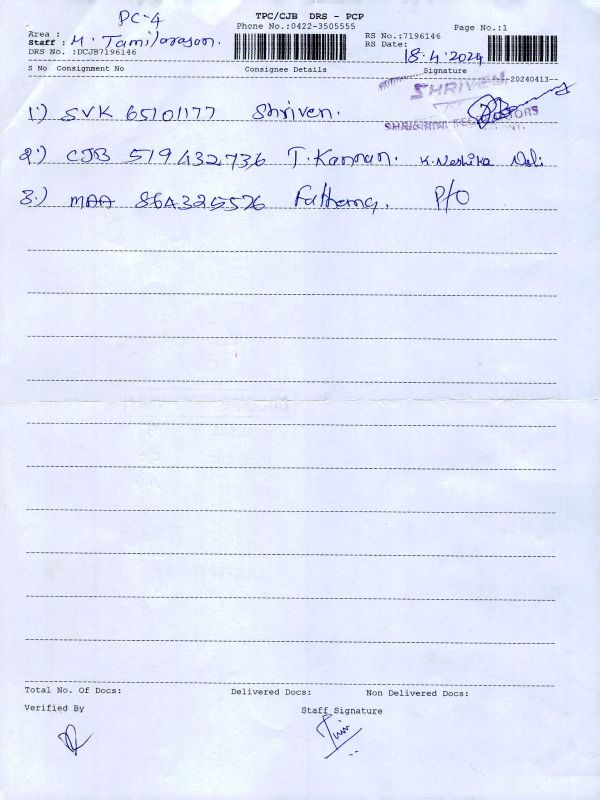 PC-4
TPC/CJB DRS - PCP
Phone No.:0422-3505555
Page No.:1
Area :
RS No.:7196146
Staff : M. Tamilarasan.
RS Date:
18.4.2024
DRS No. :DCJB7196146
S No Consignment No Consignee Details Signature
--20240413--
SHRIVEN
1.) SVK 65101177 Shriven.
2.) CJB 519432736 T. Kannan. K. Nashika
3.) MAA 864325526 Fathema. P/O
Total No. Of Docs: Delivered Docs: Non Delivered Docs:
Verified By Staff Signature